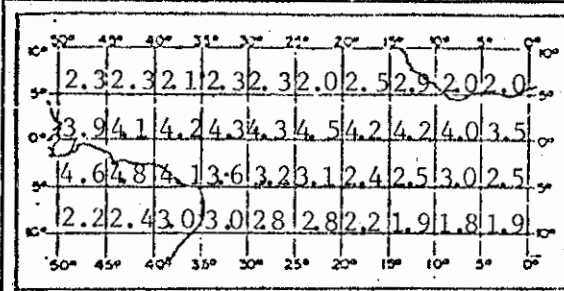 50° 45° 40° 35° 30° 25° 20° 15° 10° 5° 0°
10° 10°
2.3 2.3 2.1 2.3 2.3 2.0 2.5 2.9 2.0 2.0
5° 5°
3.9 4.1 4.2 4.3 4.3 4.5 4.2 4.2 4.0 3.5
0° 0°
4.6 4.8 4.1 3.6 3.2 3.1 2.4 2.5 3.0 2.5
5° 5°
2.2 2.4 3.0 3.0 2.8 2.8 2.2 1.9 1.8 1.9
10° 10°
50° 45° 40° 35° 30° 25° 20° 15° 10° 5° 0°